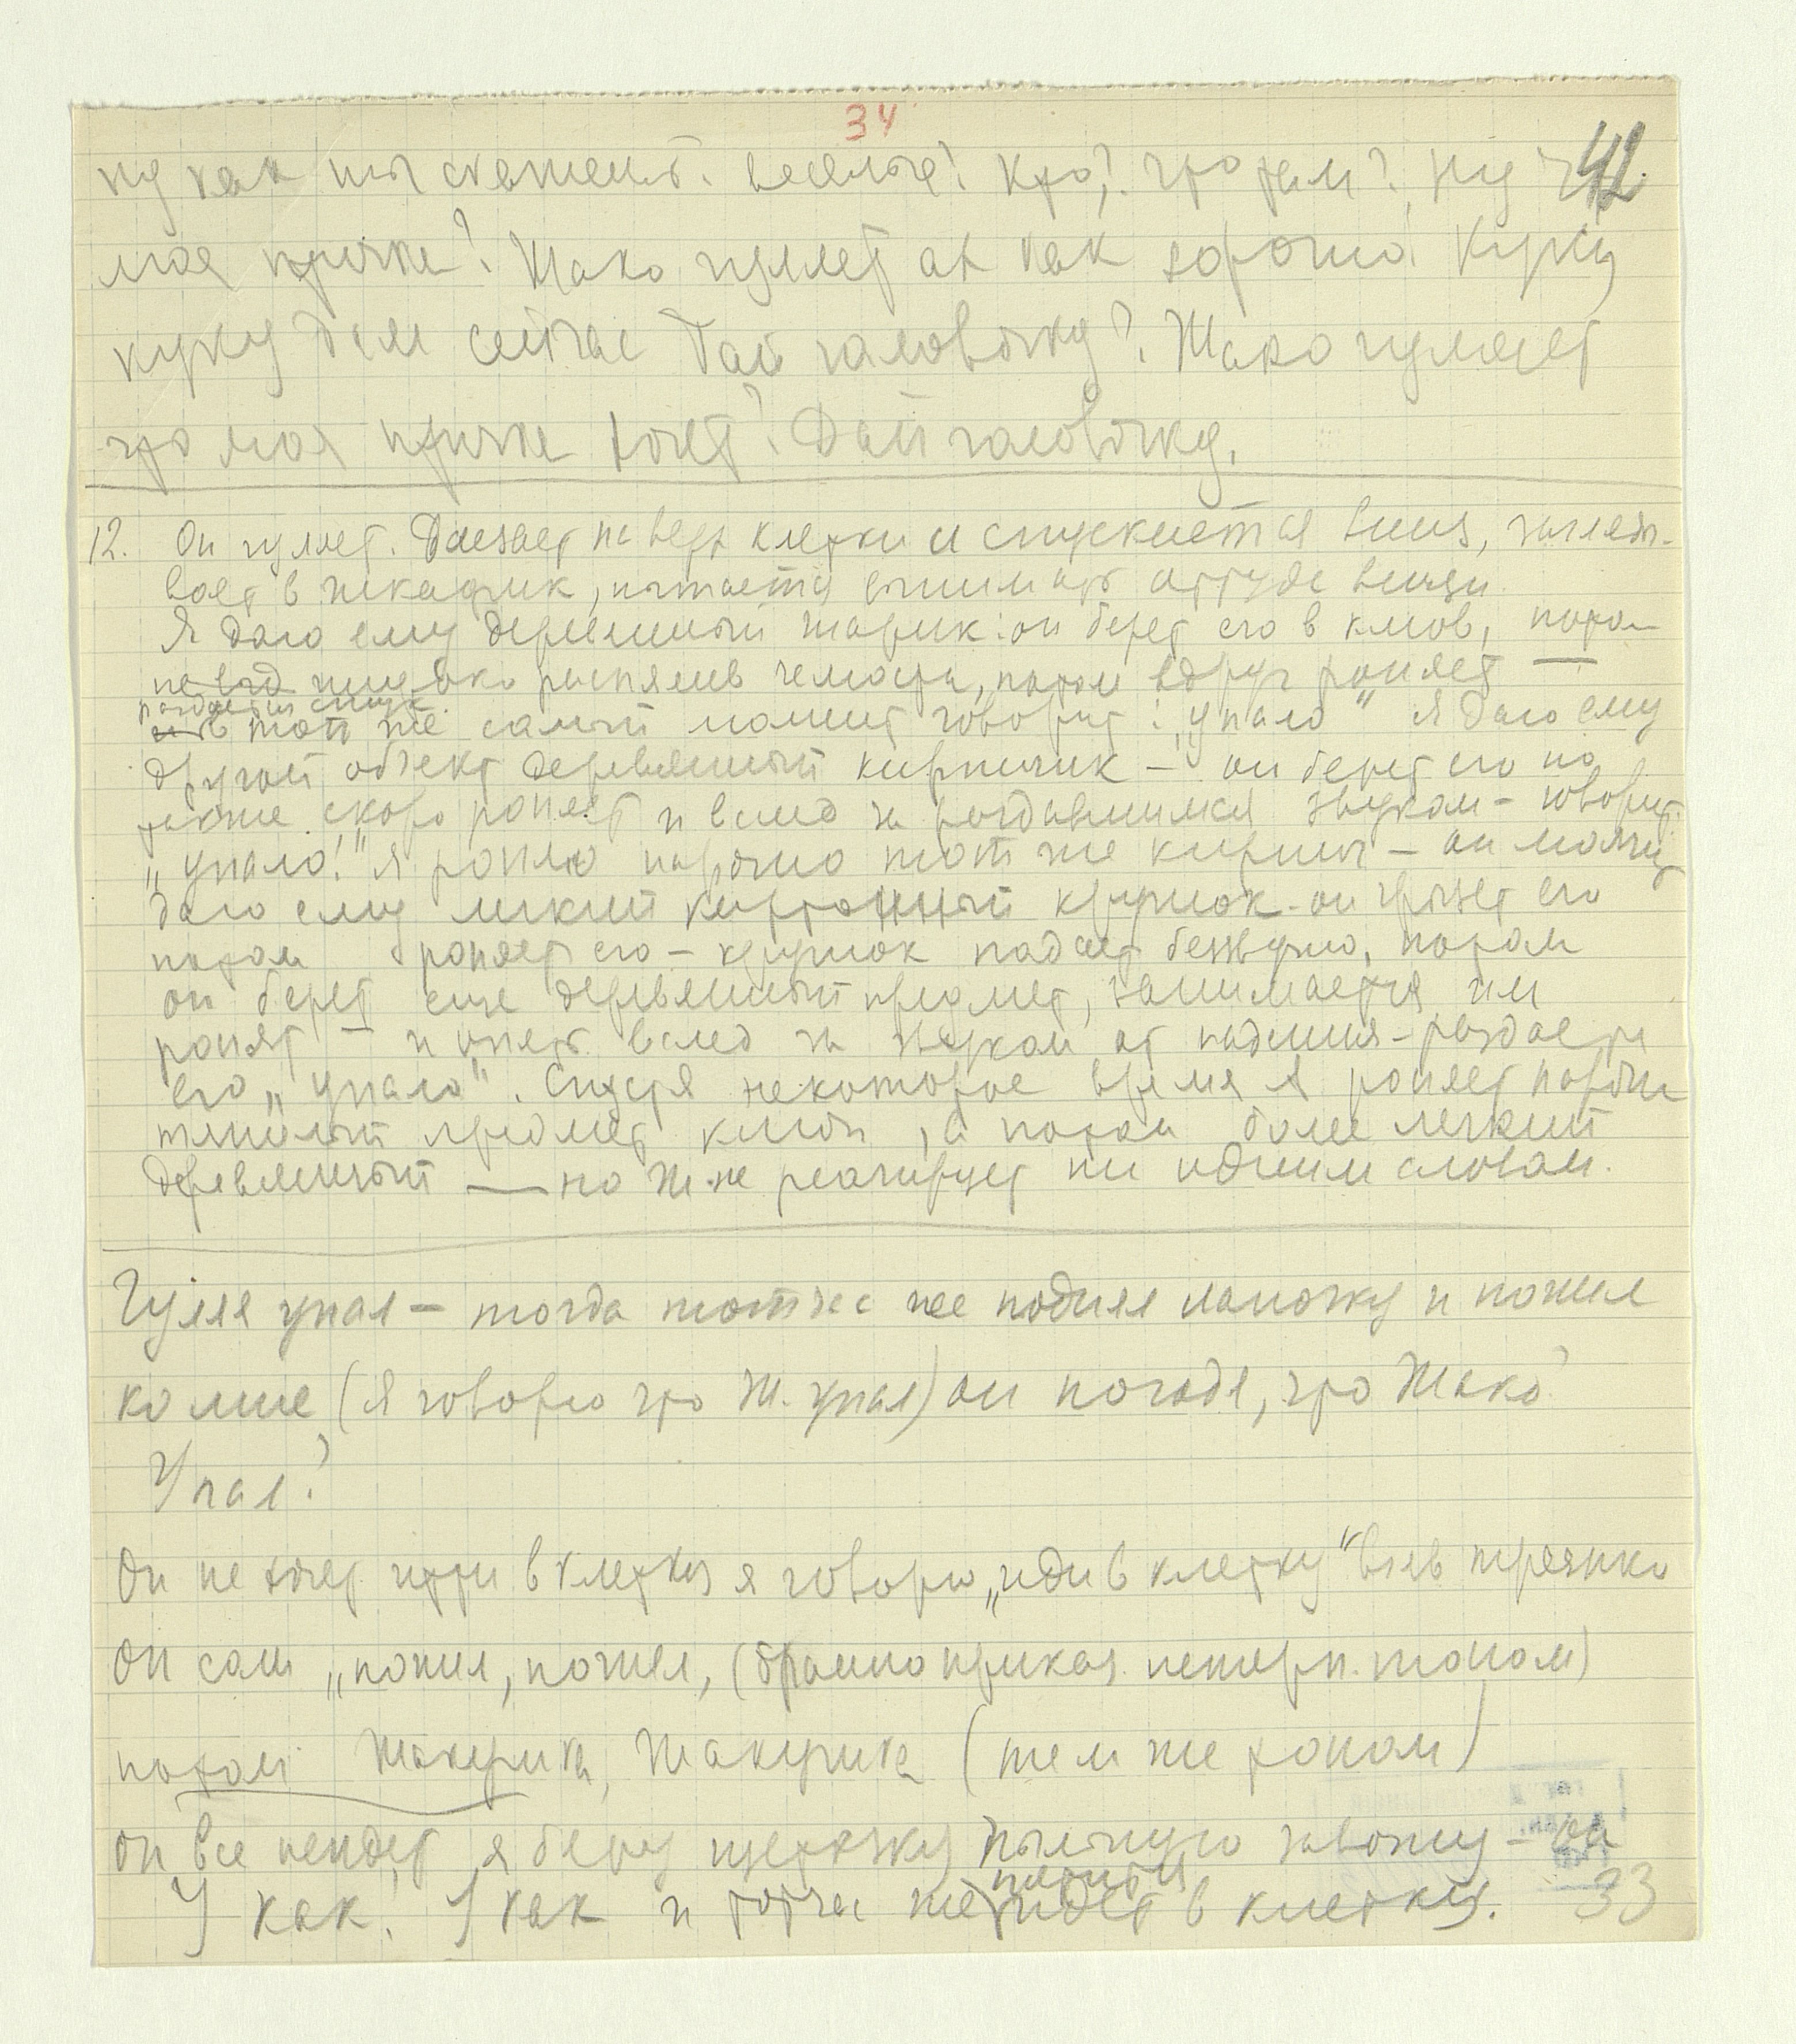 34
42
ну как ты скажешь? веселые? Кто? что там? Ну
моя птичка? Жако гуляет ах как хорошо! Куку
куку дам сейчас Дай головочку? Жако гуляет
что моя птичка хочет? Дай головочку.
12. Он гуляет. Влезает на верх клетки и спускается вниз, загляды-
вает в шкафик, пытается вынимать оттуда вещи
Я даю ему деревянный шарик: он берет его в клюв,
потом вдруг роняет
раздается стук
в тот же самый момент говорит: „упало" Я даю ему
другой объект деревянный кирпичик — он берет его но
также скоро роняет и вслед за раздавшимся звуком – говорит
„упало!" я роняю нарочно тот же кирпич – он молчит
даю ему легкий картонный кружок – он грызет его
потом роняет его – кружок падает беззвучно, потом
он берет еще деревянный предмет, занимается им
ронят – и опять вслед за звуком от падения – раздается
его „упало". Спустя некоторое время я роняет нарочно
тяжелый предмет ключи, а потом более легкий
деревянный — но Ж. не реагирует ни одним словом.
Гуляя упал – тогда тотчас же поднял лапочку и пошел
ко мне (я говорю что Ж. упал) он погодя, что Жако?
Упал?
Он не хочет идти в клетку я говорю „иди в клетку"
Он сам „пошел, пошел, (бранно приказ. нетерп. тоном)
потом Жакушка, Жакушка (тем же тоном)
Он все нейдет я беру щеточку пыльную
Ух как! Ух как и тотчас же идет в клетку.
33